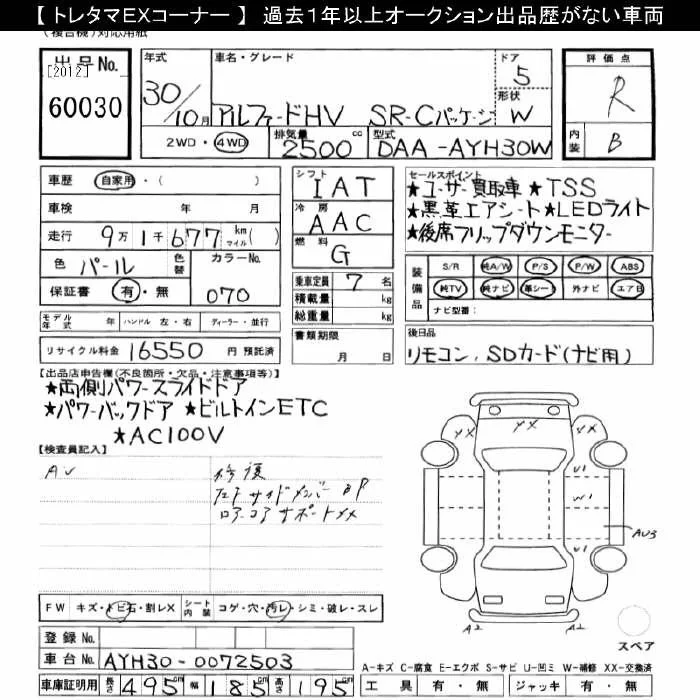 【 トレタマEXコーナー 】 過去1年以上オークション出品歴がない車両
出品No.
[2012]
60030
年式
30/10月
車名・グレード
アルファードHV SR-Cパッケージ
ドア
5
形状
W
評価点
R
内装
B
2WD・4WD
排気量
2500 cc
型式
DAA-AYH30W
車歴 自家用・( )
車検 年 月
走行 9万1千677 km マイル( )
色 パール 色替 カラーNo.
保証書 有・無 070
モデル年式 ハンドル 左・右 ディーラー・並行
リサイクル料金 16550 円 預託済
シフト
IAT
冷房
AAC
燃料
G
乗車定員 7 名
積載量 kg
総重量 kg
書類期限
月 日
セールスポイント
★ユーザー買取車 ★TSS
★黒革エアシート★LEDライト
★後席フリップダウンモニター
装備品
S/R 純A/W P/S P/W ABS
純TV 純ナビ 革シート 外ナビ エアB
ナビ型番:
後日品
リモコン、SDカード(ナビ用)
【出品店申告欄(不良箇所・欠品・注意事項等)】
★両側パワースライドドア
★パワーバックドア ★ビルトインETC
★AC100V
【検査員記入】
AV
修復
フロアサイドメンバー BP
ロアーコアサポートXX
XX
XX
U1
W1
U1
AU3
A2
A2
スペア
FW キズ・トビ石・割レX シート内装 コゲ・穴・汚レ・シミ・破レ・スレ
登録No.
車台No. AYH30-0072503
車庫証明用 長さ 495 幅 185 高さ 195
A-キズ C-腐食 E-エクボ S-サビ U-凹ミ W-補修 XX-交換済
工具 有・無 ジャッキ 有・無